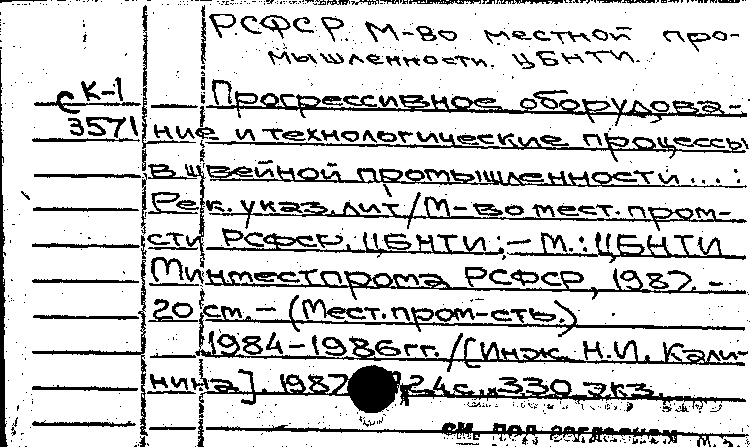 РСФСР. М-во местной про-
мышленности. ЦБНТИ.
С К-1
3571
Прогрессивное оборудова-
ние и технологические процессы
в швейной промышленности...:
Рек. указ. лит/М-во мест. пром-
сти РСФСР, ЦБНТИ; - М.: ЦБНТИ
Минместпрома РСФСР, 1987. -
20 см. - (Мест. пром-сть.)
1984-1986гг. /[Инж. Н.И. Кали-
нина]. 1987 24с. 330 экз.
см. под заглавием